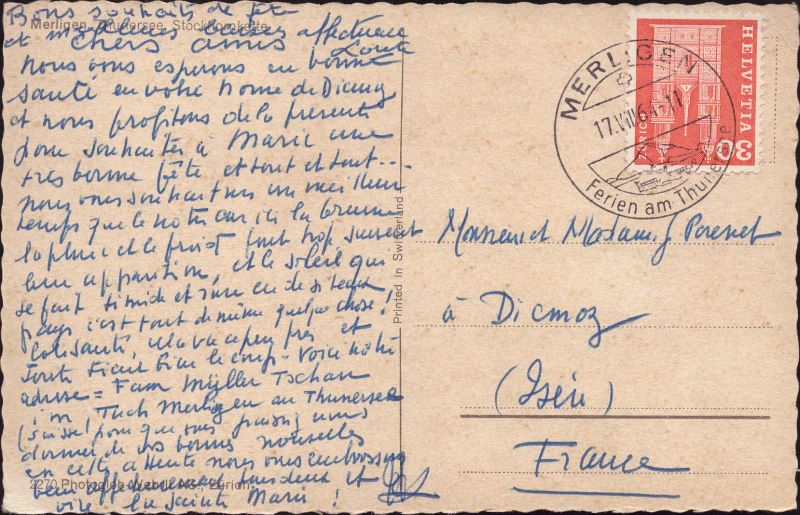 Bons souhaits de fête
Merligen, Thunersee, Stockhornkette
et meilleurs baisers affectueux
chers amis
Nous vous espérons en bonne
santé en votre home de Diémoz
et nous profitons de la présente
pour souhaiter à Marie une
très bonne fête et tout et tout...
nous vous souhaitons un meilleur
temps que le nôtre car ici la brume
la pluie et le froid font trop souvent
leur apparition, et le soleil qui
se fait timide et rare en de si beaux
pays c'est tout de même quelque chose!
Côté santé, cela va à peu près et
tient bien le coup - Voici notre
adresse = Fam Müller Tschan
im Tach Merligen am Thunersee
(Suisse) pour que vous puissiez nous
donner de vos bonnes nouvelles
en cette attente nous vous embrassons
bien affectueusement tous deux et
vive la Sainte Marie!
2270 Photoglob-Wehrli AG., Zürich
Printed in Switzerland
MERLIGEN
17.VIII.61-11
Ferien am Thunersee
HELVETIA
30
ZÜRICH
Monsieur et Madame J. Poesnet
à Diémoz
(Isère)
France